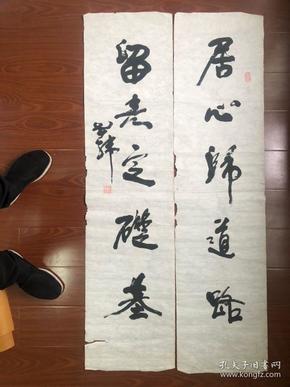 居心歸道路
留意定礎基
孔夫子旧书网